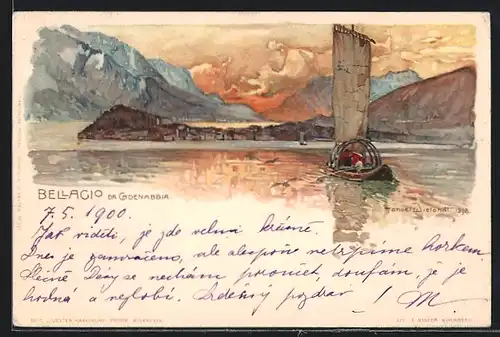 BELLAGIO DA CADENABBIA
Manuel Wielandt 1898
7.5. 1900.
Jak viděti, je zde velmi krásně.
Dnes je zamračeno, ale alespoň netrpíme horkem.
Slečně se nechám poroučet, doufám, že je
hodná a nezlobí. Srdečný pozdrav ! M